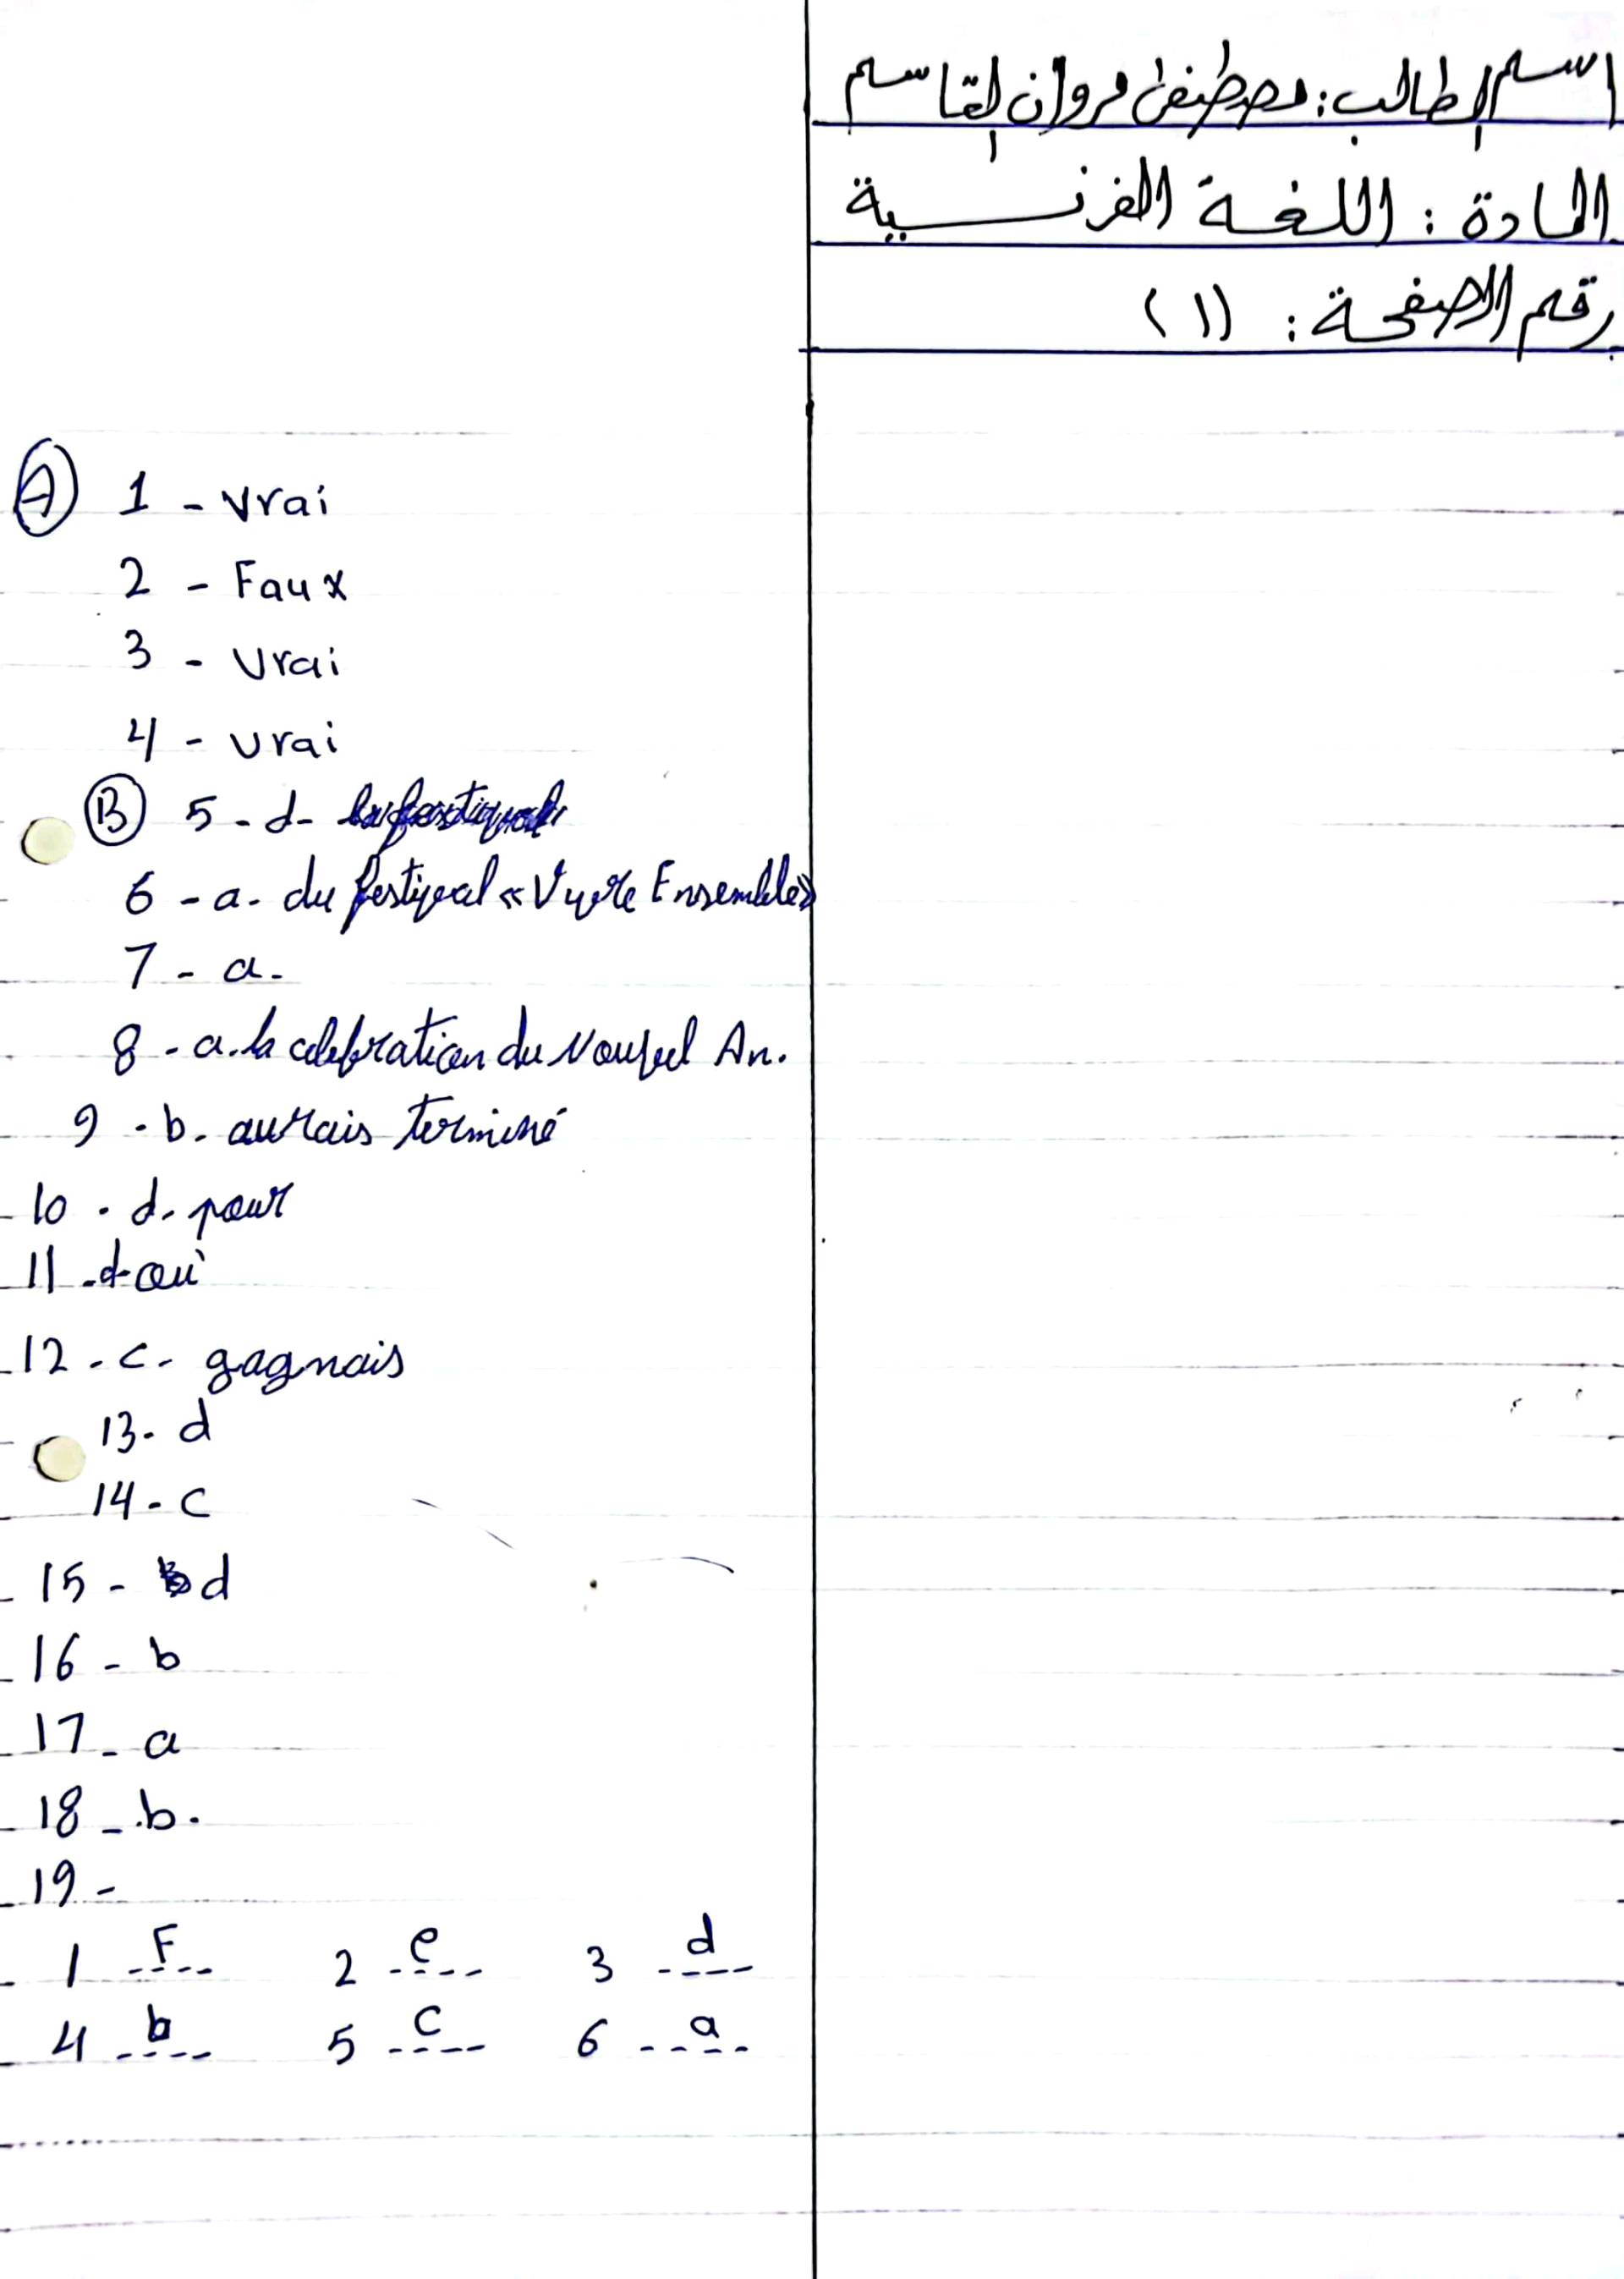 اسم الطالب: مصطفى مروان القاسم
المادة: اللغة الفرنسية
رقم الصفحة: (١)
A 1 - Vrai
2 - Faux
3 - Vrai
4 - Vrai
B 5 - d -
6 - a - du festival «Vivre Ensemble»
7 - a -
8 - a. la celebration du Nouvel An.
9 - b - aurais terminé
10 - d - pour
11 - d - où
12 - c - gagnais
13 - d
14 - c
15 - d
16 - b
17 - a
18 - b.
19 -
1 F 2 e 3 d
4 b 5 c 6 a